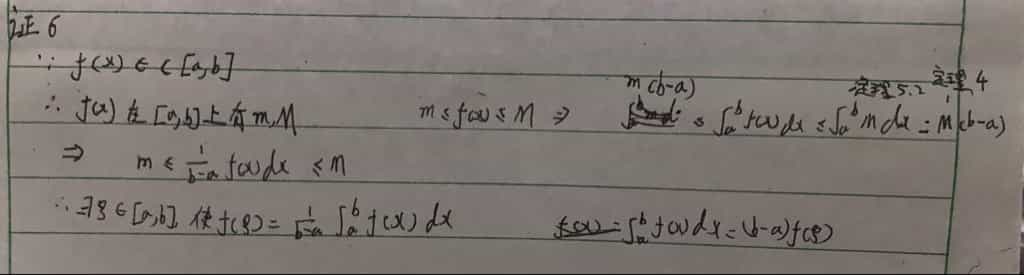 证6
∵ f(x) ∈ C[a,b]
∴ f(x) 在 [a,b] 上有 m,M  m ≤ f(x) ≤ M ⇒ m(b-a) ≤ ∫ₐᵇ f(x) dx ≤ ∫ₐᵇ M dx = M(b-a) 定理5.2 定理4
⇒ m ≤ 1/(b-a) f(x) dx ≤ M
∴ ∃ξ ∈ [a,b] 使 f(ξ) = 1/(b-a) ∫ₐᵇ f(x) dx  ∫ₐᵇ f(x) dx = (b-a) f(ξ)